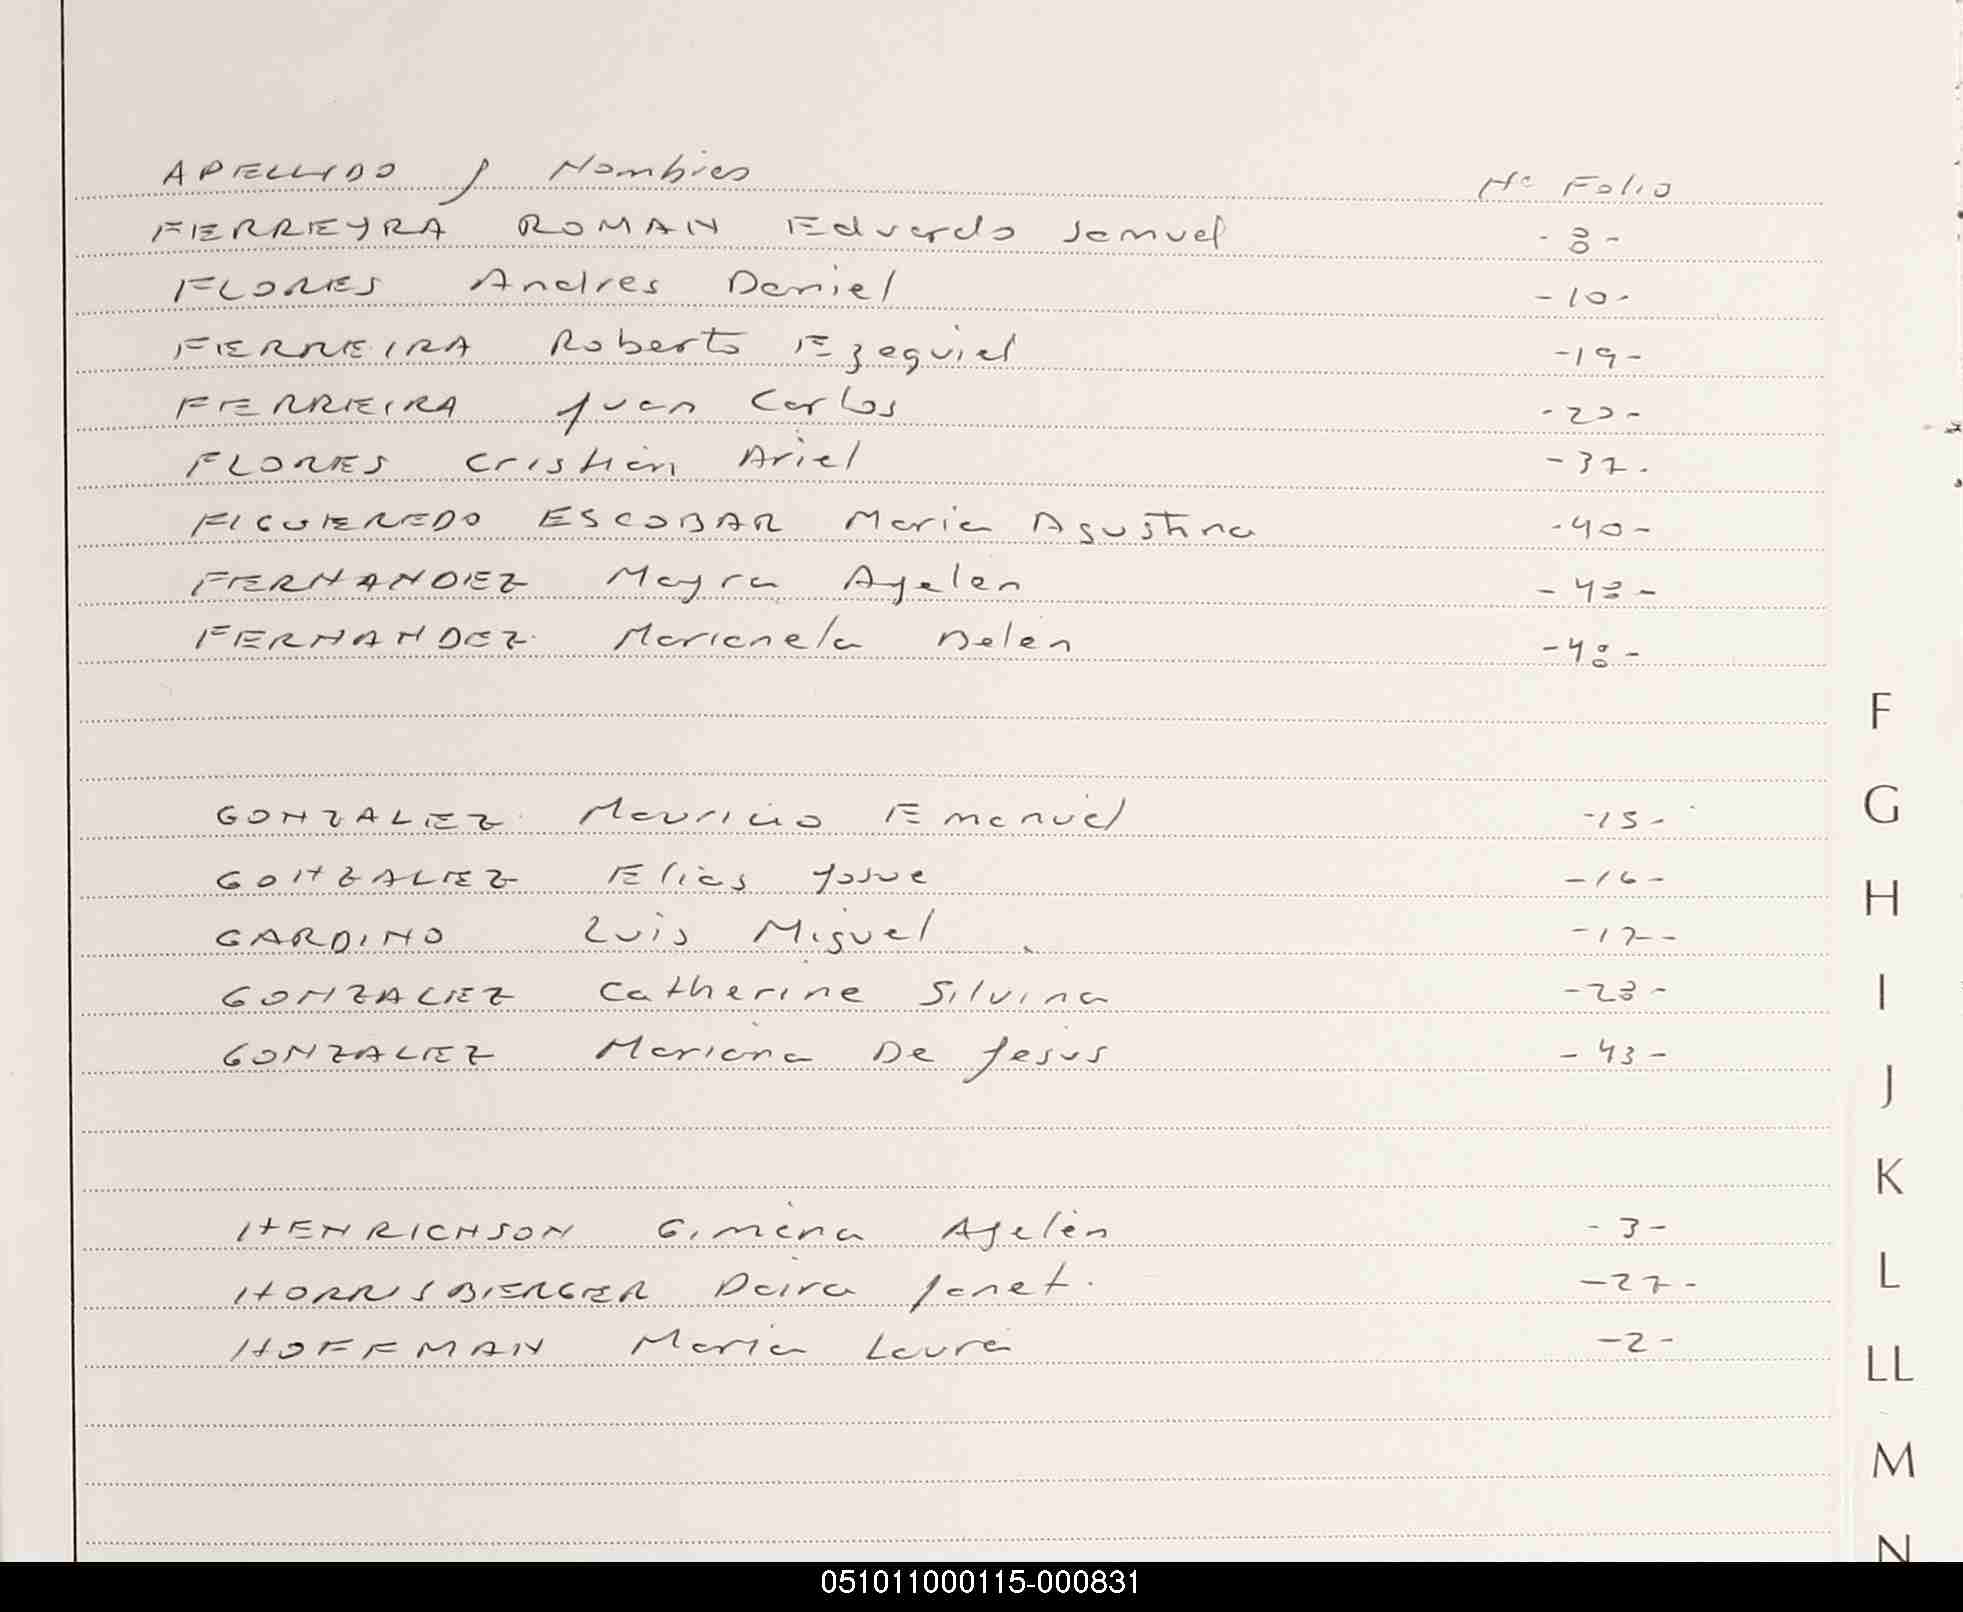 APELLIDO y Nombres Nº Folio
FERREYRA ROMAN Eduardo Samuel -8-
FLORES Andres Daniel -10-
FERREIRA Roberto Ezequiel -19-
FERREIRA Juan Carlos -20-
FLORES Cristián Ariel -37-
FIGUEREDO ESCOBAR Maria Agustina -40-
FERNANDEZ Mayra Ayelen -48-
FERNANDEZ Marianela Belén -48-
F
G
GONZALEZ Mauricio Emanuel -15-
GONZALEZ Elias Josue -16-
H
GARDINO Luis Miguel -17-
GONZALEZ Catherine Silvina -28-
I
GONZALEZ Mariana De Jesús -43-
J
K
HENRICHSON Giména Ayelén -3-
HORRISBERGER Daira Janet. -27-
L
HOFFMAN Maria Laura -2-
LL
M
N
051011000115-000831